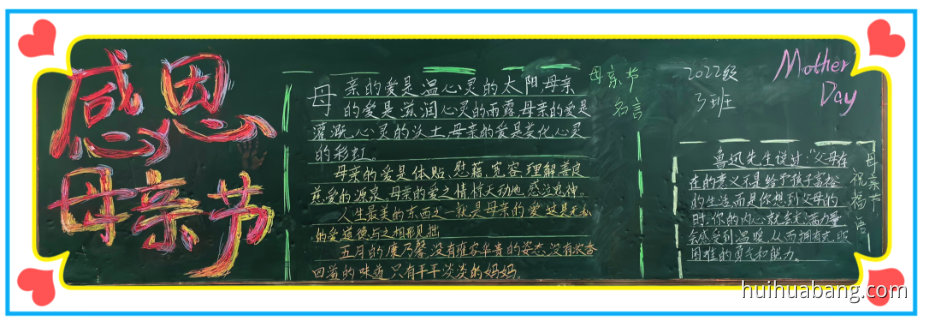 感恩
母亲节
母亲的爱是温心灵的太阳母亲
的爱是滋润心灵的雨露母亲的爱是
灌溉心灵的沃土母亲的爱是美化心灵
的彩虹。
母亲的爱是体贴、慰藉、宽容、理解善良
慈爱的源泉。母亲的爱之情惊天动地
人生最美的东西之一就是母亲的爱这是无私
的爱道德与之相形见拙
五月的康乃馨,没有雍容华贵的姿态,没有浓香
四溢的味道只有平平淡淡的妈妈。
母亲节
名言
2022级
3班
Mother
Day
鲁迅先生说过:"父母存
在的意义不是给予孩子富裕
的生活而是你想到父母的
时,你的内心就会充满力量
会感受到温暖,从而拥有克服
困难的勇气和能力。
母亲节
祝福语
huihuabang.com